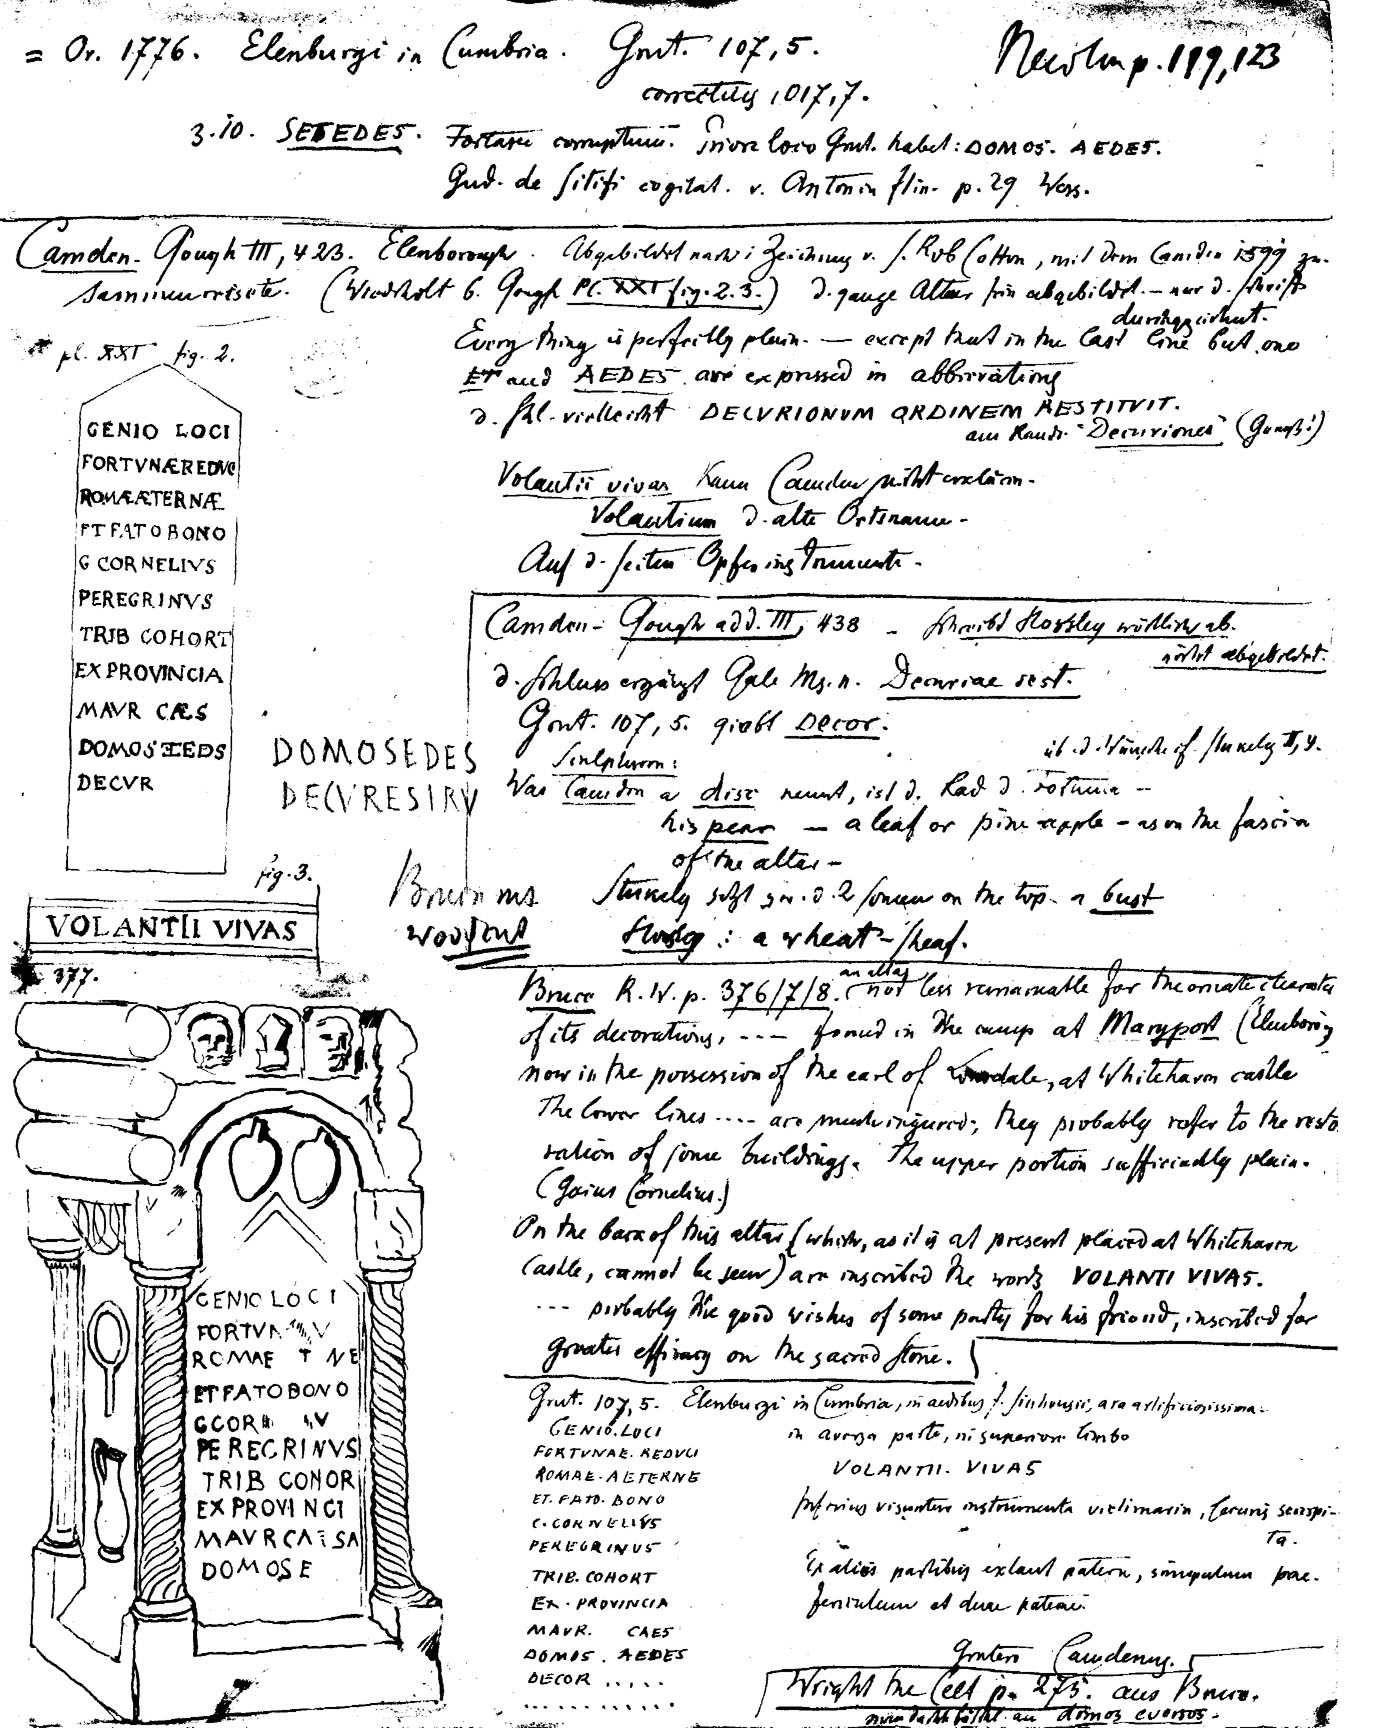 = Or. 1776. Elenburgi in Cumbria. Grut. 107,5.
correctius 1017,7.
p. 199,123
3.10. SETEDES. Fortasse corruptum. Priore loco Grut. habet: DOMOS. AEDES.
Gud. de Sitifi cogitat. v. Antonin Itin. p. 29 Wess.
Camden-Gough III, 423. Elenborough. Abgebildet nach Zeichnung v. S. Rob Cotton, mit dem Camden 1599 zu-
sammenreiste. (Wiederholt b. Gough Pl. XXI fig. 2.3.) d. ganze Altar fein abgebildet. — nur d. Schrift
durchgezeichnet.
Every thing is perfectly plain. — except that in the last line but one
ET and AEDES are expressed in abbreviations
d. Schl. vielleicht DECVRIONVM ORDINEM RESTITVIT.
am Rande "Decuriones" (Gough!)
pl. XXI fig. 2.
GENIO LOCI
FORTVNÆREDVC
ROMÆÆTERNÆ
ET FATO BONO
G CORNELIVS
PEREGRINVS
TRIB COHORT
EX PROVINCIA
MAVR CÆS
DOMOS ÆEDS
DECVR
Volantii vivas kann Camden nicht erklären.
Volantium d. alte Ortsname.
Auf d. Seiten Opferinstrumente.
Camden-Gough add. III, 438 – schreibt Horsley wörtlich ab.
nicht abgebildet.
d. Schluss ergänzt Gale Ms. n. Decuriae rest.
Grut. 107, 5. giebt Decor.
DOMOSEDES
DECVRESIRV
Sculpturen:
cf. Stukely II, 4.
Was Camden a disc nennt, ist d. Rad d. Fortuna –
his pear — a leaf or pine-apple – as on the fascia
of the altar –
fig. 3.
VOLANTII VIVAS
Bruce ms
Woodcut
Stukely setzt zw. d. 2 on the top – a bust
Horsley: a wheat-sheaf.
377.
Bruce R.W. p. 376/7/8. an altar not less remarkable for the ornate character
of its decorations, --- found in the camp at Maryport (Elenboro')
now in the possession of the earl of Lonsdale, at Whitehaven castle
The lower lines .... are much injured; they probably refer to the resto
ration of some buildings. The upper portion sufficiently plain.
(Gaius Cornelius.)
On the back of this altar (which, as it is at present placed at Whitehaven
Castle, cannot be seen) are inscribed the words VOLANTI VIVAS.
... probably the good wishes of some party for his friend, inscribed for
greater efficacy on the sacred stone.
GENIO LOCI
FORTVN V
ROMAE T NE
ET FATO BONO
G COR V
PEREGRINVS
TRIB COHOR
EX PROVINCI
MAVR CAESA
DOMOS E
Grut. 107, 5. Elenburgi in Cumbria, in aedibus J. Sinhousii, ara artificiosissima.
GENIO. LOCI
FORTVNAE. REDVCI
ROMAE. AETERNE
ET. FATO. BONO
C. CORNELIVS
PEREGRINVS
TRIB. COHORT
EX. PROVINCIA
MAVR. CAES
DOMOS. AEDES
DECOR .....
............
in aversa parte, in superiore limbo
VOLANTII. VIVAS
Inferius visuntur instrumenta victimaria, securis secespi-
ta.
Ex aliis partibus extant patera, simpulum prae-
fericulum et duae paterae.
Grutero Camdenus.
Wright the Celt p. 275. aus Bruce.
an domos eversos.